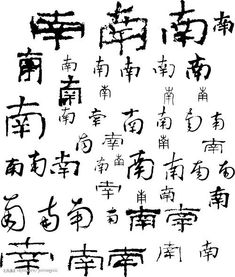 南 南 南 南
南 南 南 南 南
南 南 南
南 南 南 南 南
南 南 南 南
南 南 南 南 南 南 南
南 南 南 南
南 南 南 南
南 南 南 南 南